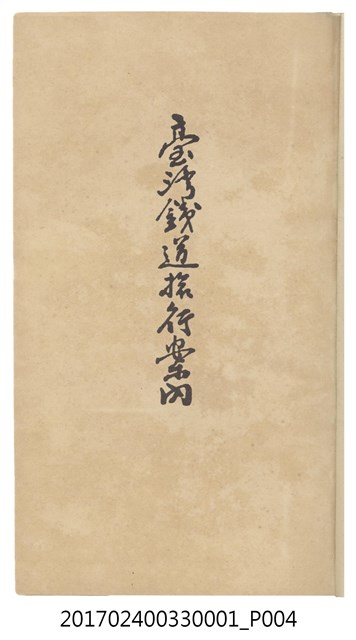 臺灣鐵道旅行案內
201702400330001_P004